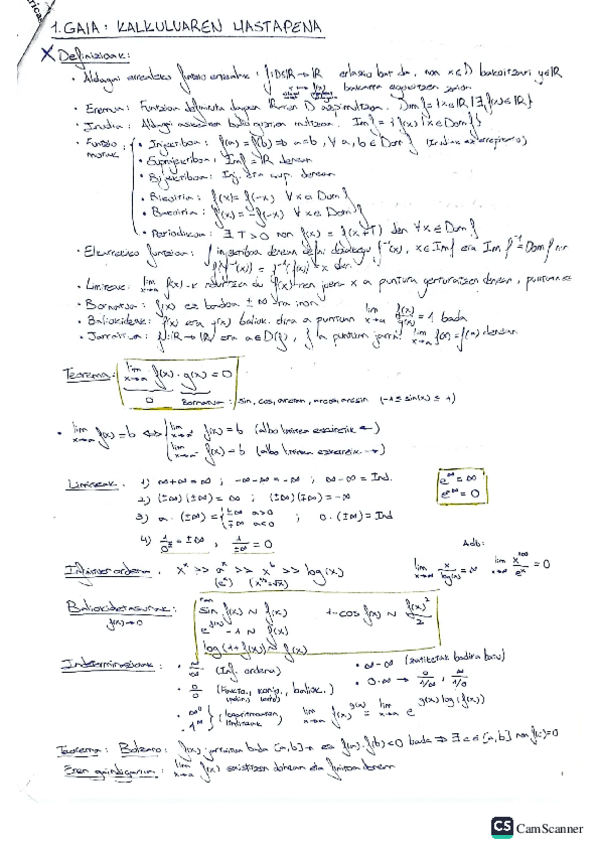 1. GAIA: KALKULUAREN HASTAPENA
X Definizioak:
• Aldagai errealeko funtzio erreala: f: D⊂ℝ→ℝ erlazio bat da, non x∈D bakoitzari y∈ℝ
bakarra egokitzen zaion
• Eremua: Funtzioa definituta dagoen ℝ-ren D azpimultzoa. Domf = {x∈ℝ | ∃f(x)∈ℝ}
• Irudia: Aldagai askearen balio guztien multzoa. Imf = {f(x) | x∈Domf}
• Funtzio motak:
• Injektiboa: f(a) = f(b) ⇒ a=b, ∀ a,b ∈ Domf (Irudiak ez errepikatu)
• Suprajektiboa: Imf = ℝ denean
• Bijektiboa: Inj. eta sup. denean
• Bikoitia: f(x) = f(-x) ∀x∈Domf
• Bakoitia: f(x) = -f(-x) ∀x∈Domf
• Periodikoa: ∃T>0 non f(x) = f(x+T) den ∀x∈Domf
• Elkarrekiko funtzioa: f injektiboa denean defini dezakegu f⁻¹(x), x∈Imf eta Imf⁻¹=Domf
f(f⁻¹(x)) = f⁻¹(f(x)) = x da.
• Limiteak: lim x→a f(x)-k f(x)-ren joera x a puntura gerturatzen denean, puntuan ez
• Bornatua: f(x) ez badoa ±∞-ra inon
• Baliokideak: f(x) eta g(x) baliok. dira a puntuan lim x→a f(x)/g(x) = 1 bada
• Jarraitua: f: D→ℝ eta a∈D(f), f a puntuan jarrai lim x→a f(x) = f(a) denean
Teorema: lim x→a f(x)·g(x) = 0
0 Bornatua: sin, cos, arctan, arccos, arcsin (-1≤sin(x)≤1)
• lim x→a f(x) = b ⟺ { lim x→a⁺ f(x) = b (albo limitea eskuinetik ←)
lim x→a⁻ f(x) = b (albo limitea ezkerretik →)
Limiteak. 1) ∞+∞ = ∞ ; -∞-∞ = -∞ ; ∞-∞ = Ind.
e^∞ = ∞
e^-∞ = 0
2) (±∞)(±∞) = ∞ ; (±∞)(∓∞) = -∞
3) a·(±∞) = { ±∞ a>0 ; 0·(±∞) = Ind
∓∞ a<0
4) 1/0^± = ±∞, 1/±∞ = 0
Adb:
Infinituen ordena. xˣ >> aˣ >> xᵇ >> log(x) lim x→∞ x/log(x) = ∞ lim x→∞ x¹⁰⁰/eˣ = 0
(eˣ) (x^½=√x)
Baliokidetasunak: f(x)→0
tan
sin f(x) ~ f(x) 1-cos f(x) ~ f(x)²/2
e^f(x) - 1 ~ f(x)
log(1+f(x)) ~ f(x)
Indeterminazioak: • ∞/∞ (Inf. ordena) • ∞-∞ (zatiketak badira batu)
• 0/0 (Fakto., konj., baliok.) • 0·∞ → 0/(1/∞), ∞/(1/0)
• ∞⁰
• 1^∞ } (logaritmoaren limiteak) lim x→a f(x)^g(x) = lim x→a e^g(x)log(f(x))
Teorema: Bolzano: f(x) jarraitua bada [a,b]-n eta f(a)·f(b)<0 bada ⇒ ∃c∈[a,b] non f(c)=0
Eten gaindigarria: lim x→a f(x) existitzen denean eta finitua denean
CS CamScanner